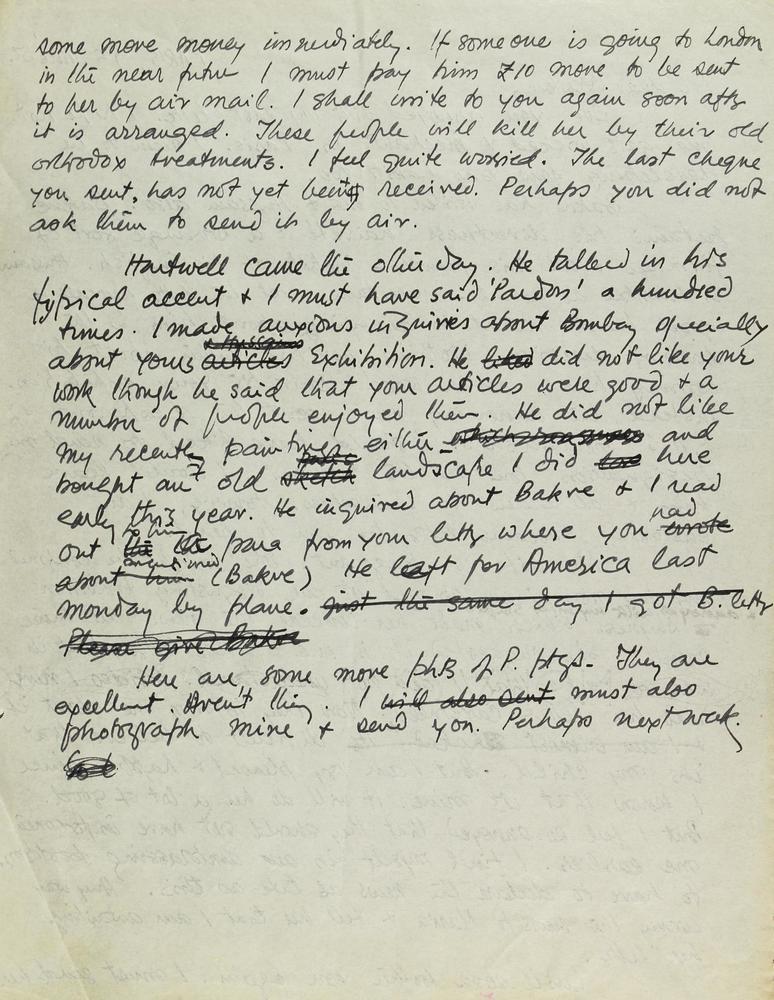 some more money immediately. If someone is going to London
in the near future I must pay him £10 more to be sent
to her by air mail. I shall write to you again soon after
it is arranged. These people will kill her by their old
orthodox treatments. I feel quite worried. The last cheque
you sent, has not yet being received. Perhaps you did not
ask them to send it by air.
Hartwell came the other day. He talked in his
typical accent & I must have said 'Pardon' a hundred
times. I made anxious inquiries about Bombay specially
about yours articles Exhibition. He liked did not like your
work though he said that your articles were good & a
number of people enjoyed them. He did not like
my recently paintings either and
bought an old sketch landscape I did here
early this year. He inquired about Bakre & I read
out to him para from your letter where you had wrote
mentioned
about him (Bakre) He left for America last
monday by plane. just the same day I got B. letter
Please give Bakre
Here are some more phts of P. ptgs. They are
excellent. Aren't they. I will also sent must also
photograph mine & send you. Perhaps next week.